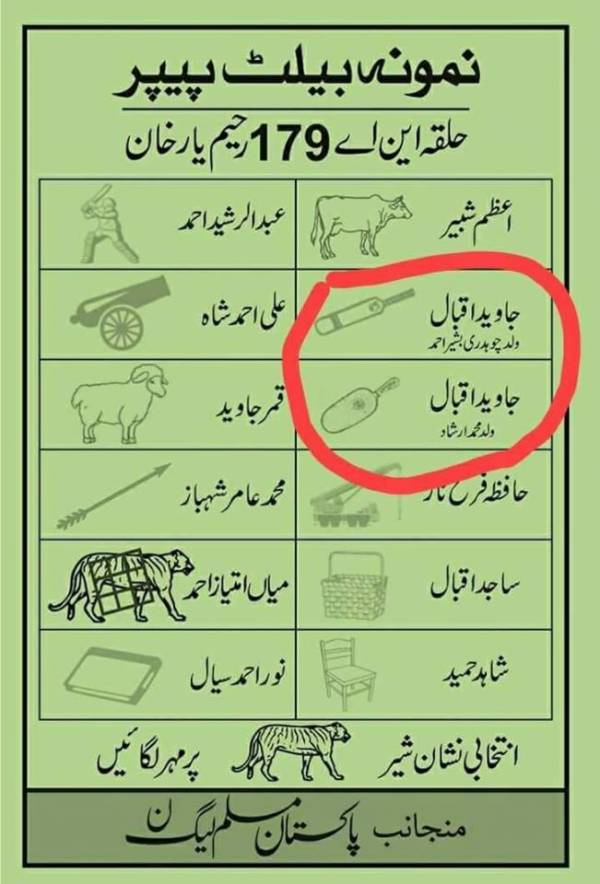 نمونہ بیلٹ پیپر
حلقہ این اے 179 رحیم یار خان
اعظم شبیر
عبدالرشید احمد
جاوید اقبال
ولد چوہدری بشیر احمد
علی احمد شاہ
جاوید اقبال
ولد محمد ارشاد
قمر جاوید
حافظہ فرح ناز
محمد عامر شہباز
ساجد اقبال
میاں امتیاز احمد
شاہد حمید
نور احمد سیال
انتخابی نشان شیر پر مہر لگائیں
منجانب پاکستان مسلم لیگ ن